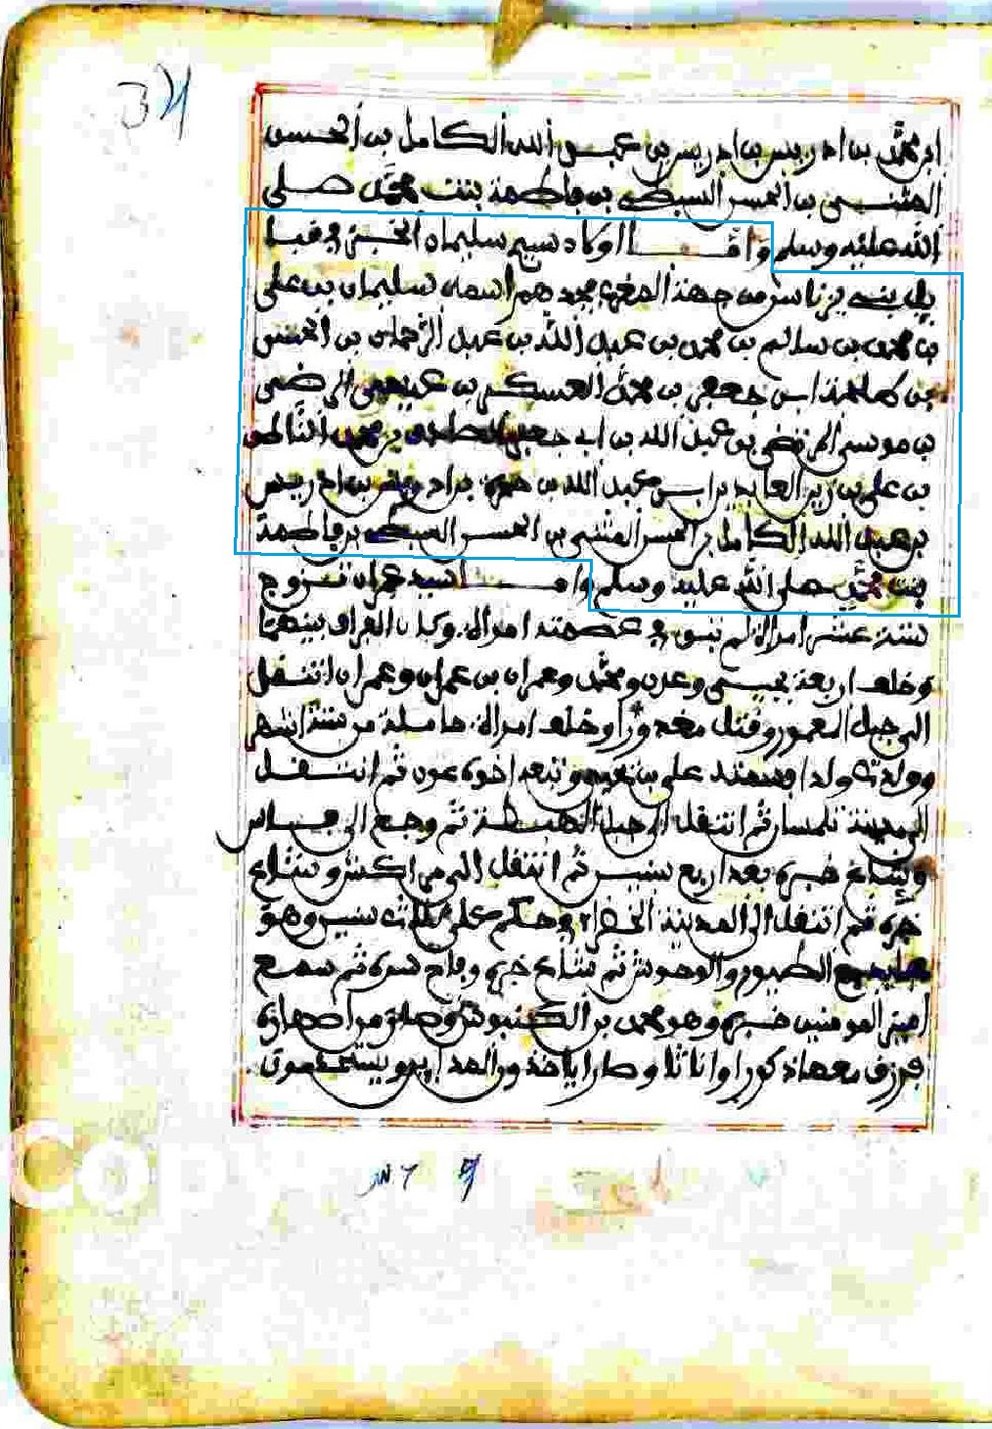 بن محمد بن ادريس بن ادريس بن عبد الله الكامل بن الحسن
المثنى بن الحسن السبط بن فاطمة بنت محمد صلى
الله عليه وسلم واما اوكاد سيد سليمان في قبا
يل بني يزناسن من جهة المغرب بجدهم اسمه سليمان بن علي
بن محمد بن سالم بن محمد بن عبد الله بن عبد الرحمان بن الحسن
بن ابن جعفر بن محمد العسكري بن الرضى
بن موسى المرتضى بن عبد الله بن ابي جعفر الصادق بن محمد الناطق
بن علي بن زين العابدين بن عبد الله بن بن ادريس بن ادريس
بن عبد الله الكامل بن الحسن المثنى بن الحسن السبط بن فاطمة
بنت محمد صلى الله عليه وسلم واما السيد عمران تزوج
ستة عشر امراة لم تبق في عصمته امراة وكان الفراق بينهما
وخلف اربعة يحيى وعون ومحمد وعمران بن عمران وعمران انتقل
الى جبل المعمور وقتل مغدورا وخلف امراة حاملة من ستة اشهر
وولدت ولدا وسمته علي بن وتبعه اخوه عون ثم انتقل
الى مدينة تلمسان ثم انتقل الى جبل الهبط ثم رجع الى فاس
وشاع خبره بعد اربع سنين ثم انتقل الى مراكش وشاع
خبره ثم انتقل الى المدينة الخضراء وحكم على ثلاث سنين وهو
الطيور والوحوش ثم شاع خبره وباح سره ثم سمع
امير المومنين خبره وهو محمد بن
فرزق معها ذكورا واناثا وصار ياخذون الهدايا ويستخدمون
34